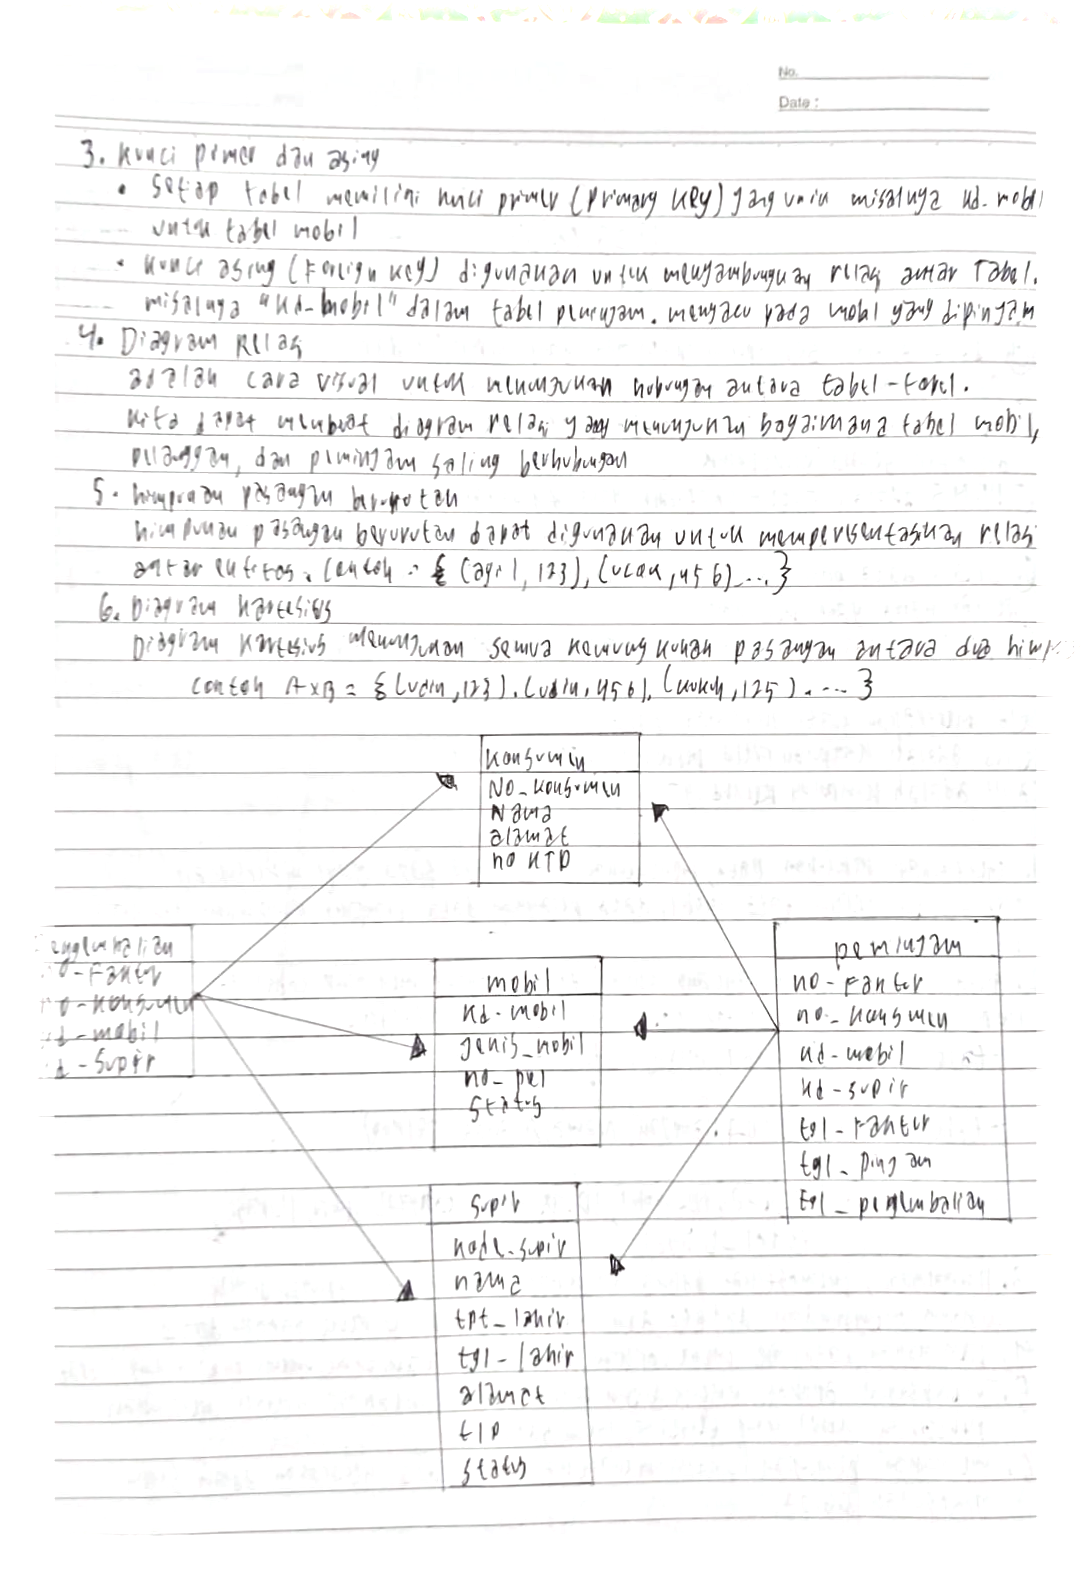 No.
Date :
3. Kunci primer dan asing
• Setiap tabel memiliki kunci primer (Primary Key) yang unik misalnya kd-mobil
untuk tabel mobil
• Kunci asing (Foreign Key) digunakan untuk menyambungkan relasi antar Tabel.
misalnya "kd-mobil" dalam tabel peminjam. mengacu pada mobil yang dipinjam
4. Diagram Relasi
adalah cara visual untuk menunjukan hubungan antara tabel-tabel.
Kita dapat membuat diagram relasi yang menunjukan bagaimana tabel mobil,
pelanggan, dan peminjam saling berhubungan
5. himpunan pasangan berurutan
himpunan pasangan berurutan dapat digunakan untuk mempersentasikan relasi
antar entitas. Contoh = { (agil, 123), (ucok, 456) ... }
6. Diagram Kartesius
Diagram Kartesius menunjukan semua kemungkinan pasangan antara dua himp
Contoh AxB = { (udin, 123). (udin, 456). (kukuh, 125) . ... }
Konsumen
No_Konsumen
Nama
alamat
no KTP
engembalian
o-Faktur
o-Konsumen
d-mobil
d-Supir
mobil
kd-mobil
jenis_mobil
no_pol
Status
peminjam
no-Faktur
no_Konsumen
kd-mobil
kd-supir
tgl-Faktur
tgl_pinjam
tgl_pengembalian
Supir
kode_supir
nama
tpt_lahir
tgl-lahir
alamat
tlp
status